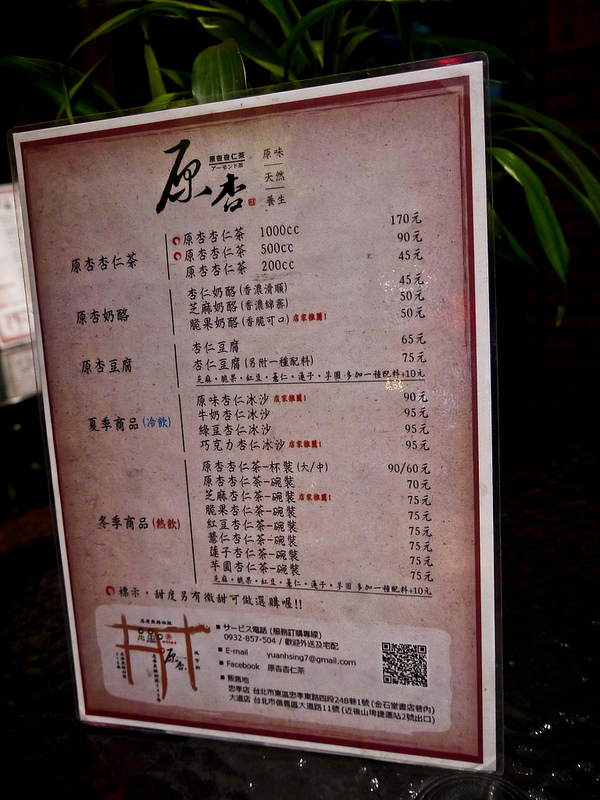 原杏
原杏杏仁茶
アーモンド茶
原味
天然
養生
原杏杏仁茶
原杏杏仁茶 1000cc 170元
原杏杏仁茶 500cc 90元
原杏杏仁茶 200cc 45元
原杏奶酪
杏仁奶酪(香濃滑順) 45元
芝麻奶酪(香濃綿密) 50元
脆果奶酪(香脆可口) 店家推薦! 50元
原杏豆腐
杏仁豆腐 65元
杏仁豆腐(另附一種配料) 75元
芝麻・脆果・紅豆・薏仁・蓮子・芋圓 多加一種配料+10元
夏季商品(冷飲)
原味杏仁冰沙 店家推薦! 90元
牛奶杏仁冰沙 95元
綠豆杏仁冰沙 95元
巧克力杏仁冰沙 店家推薦! 95元
冬季商品(熱飲)
原杏杏仁茶-杯裝(大/中) 90/60元
原杏杏仁茶-碗裝 70元
芝麻杏仁茶-碗裝 店家推薦! 75元
脆果杏仁茶-碗裝 75元
紅豆杏仁茶-碗裝 75元
薏仁杏仁茶-碗裝 75元
蓮子杏仁茶-碗裝 75元
芋圓杏仁茶-碗裝 75元
芝麻・脆果・紅豆・薏仁・蓮子・芋圓 多加一種配料+10元
標示，甜度另有微甜可做選購喔!!
原杏
サービス電話(服務訂購專線)
0932-857-504 / 歡迎外送及宅配
E-mail yuanhsing7@gmail.com
Facebook 原杏杏仁茶
販售地
忠孝店 台北市東區忠孝東路四段248巷1號(金石堂書店巷內)
大道店 台北市信義區大道路11號(近後山埤捷運站2號出口)